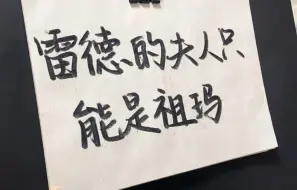 雷德的夫人只
能是祖玛